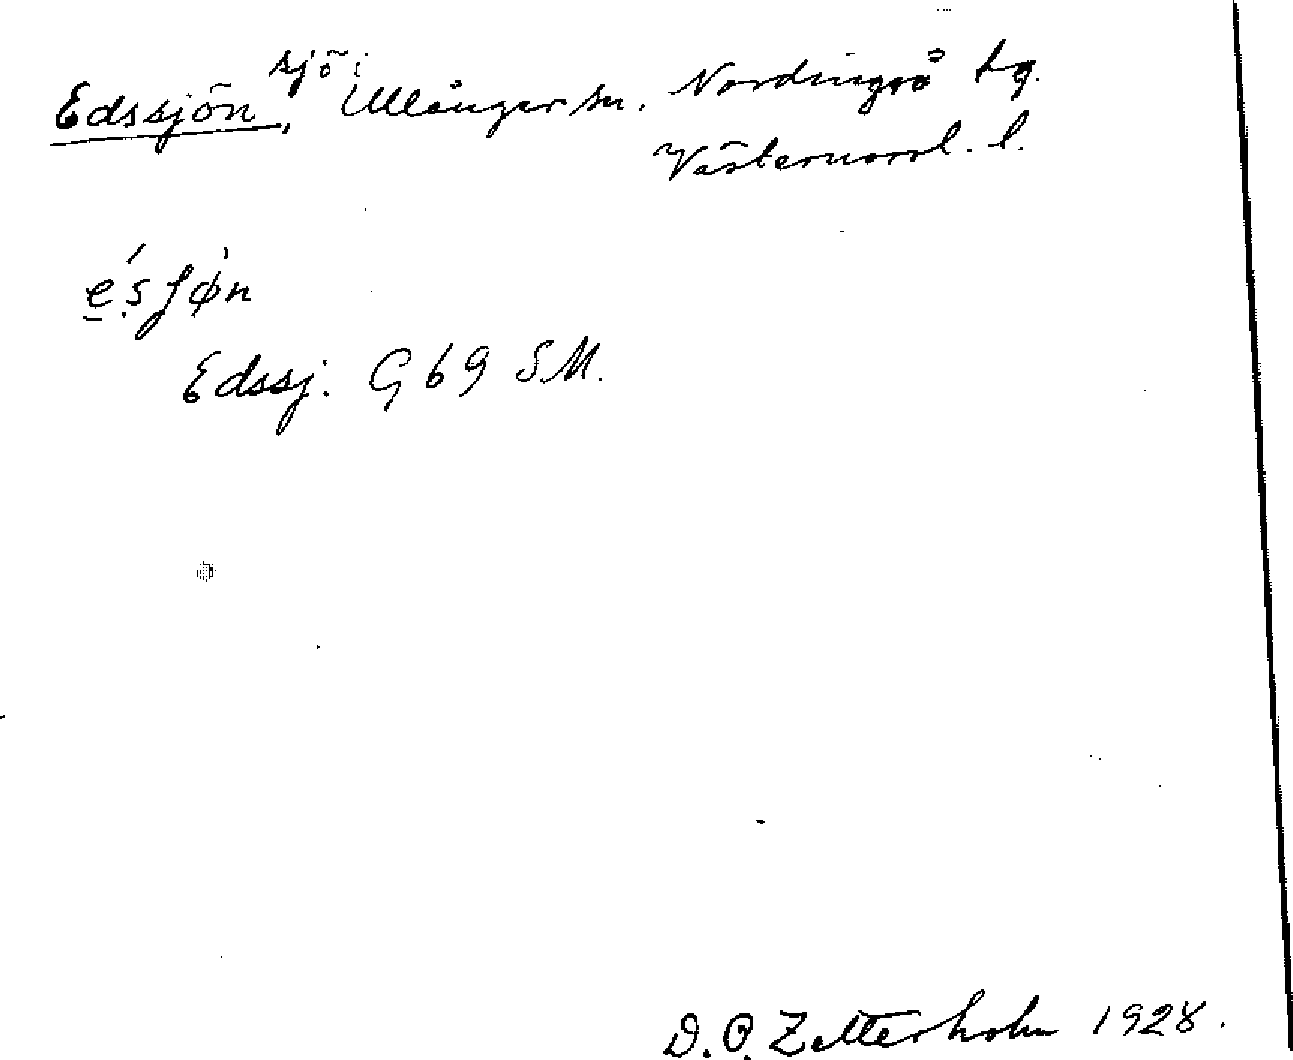 Edssjön, sjö i Ullånger sn. Nordingrå tg.
Västernorrl. l.
e̱´sʃø̀n
Edssj. G 69 S.M.
D. O. Zetterholm 1928.